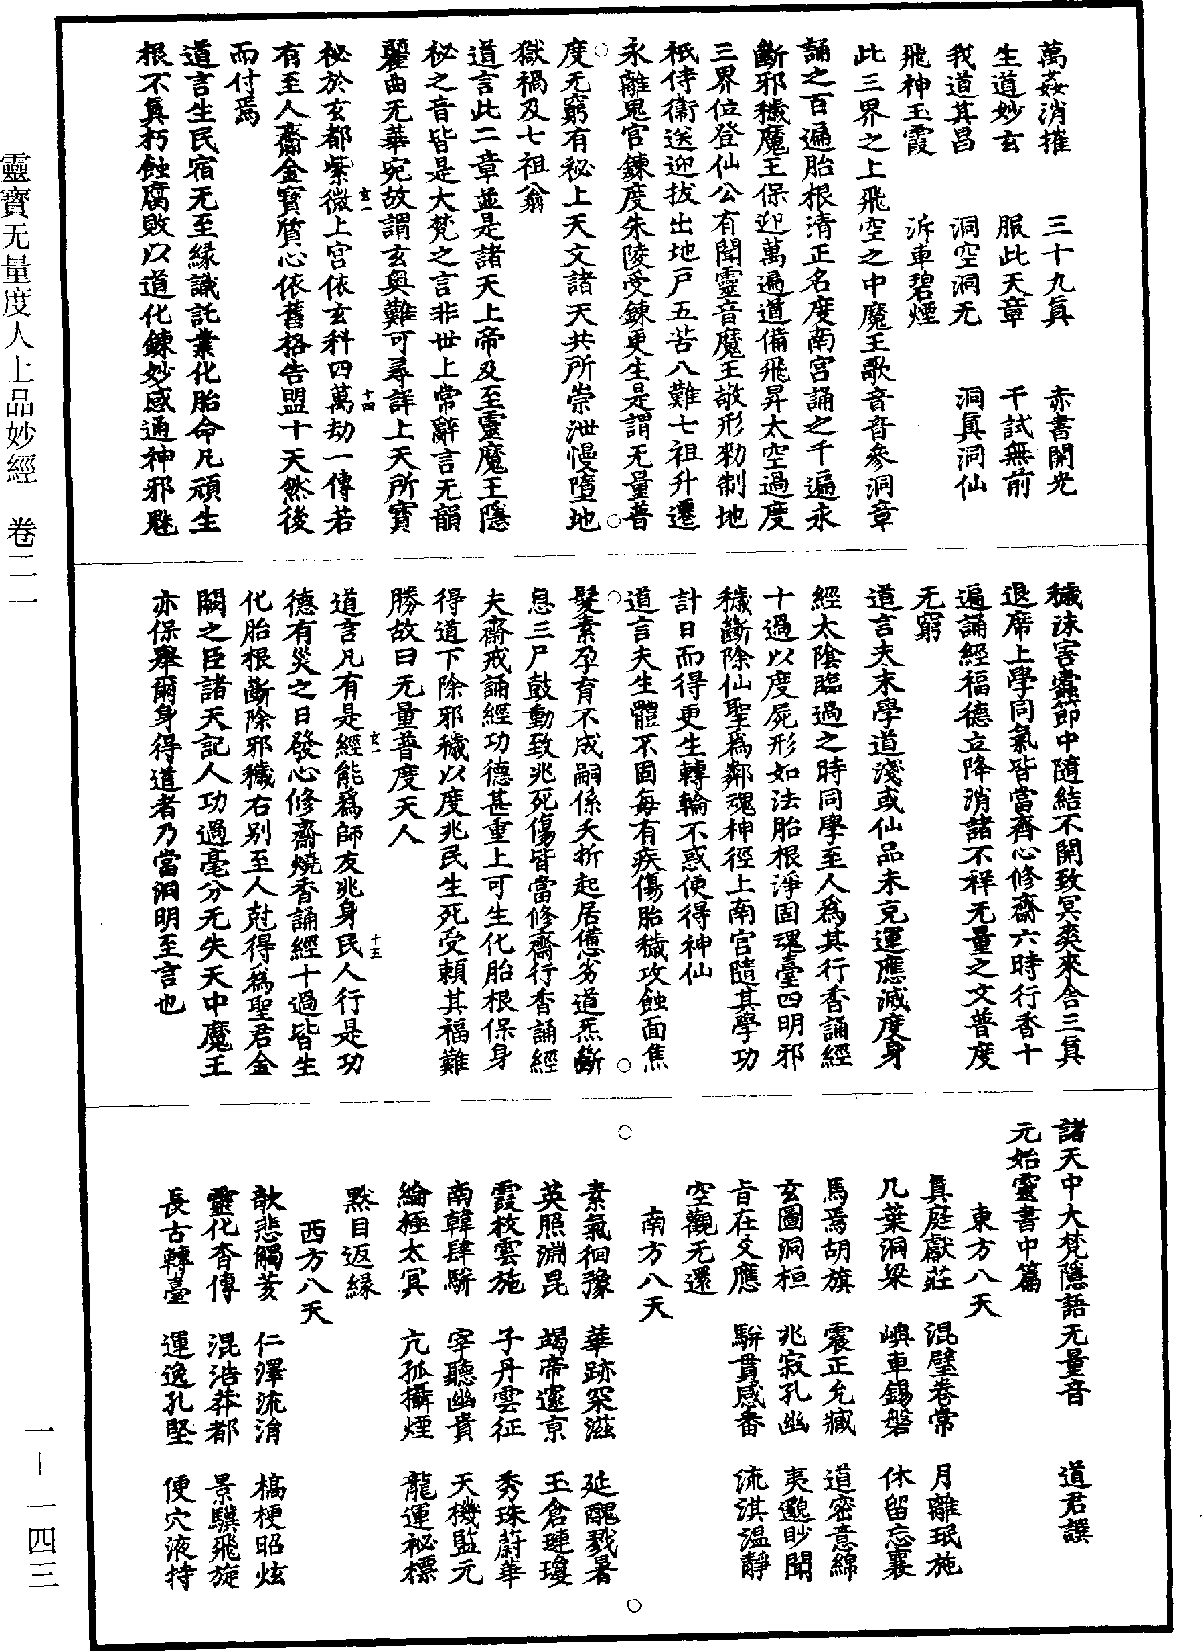 萬姦消摧　三十九真　赤書開光
生道妙玄　服此天章　千試無前
我道其昌　洞空洞无　洞真洞仙
飛神玉霞　泝車碧煙
此三界之上飛空之中魔王歌音音參洞章
誦之百遍胎根清正名度南宮誦之千遍永
斷邪穢魔王保迎萬遍道備飛昇太空過度
三界位登仙公有聞靈音魔王敬形勑制地
祇侍衛送迎拔出地戶五苦八難七祖升遷
永離鬼官鍊度朱陵受鍊更生是謂无量普
度无窮有秘上天文諸天共所崇泄慢墮地
獄禍及七祖翁
道言此二章並是諸天上帝及至靈魔王隱
秘之音皆是大梵之言非世上常辭言无韻
麗曲无華宛故謂玄奧難可尋詳上天所寶
秘於玄都紫微上宮依玄科四萬劫一傳若
有至人齎金寶質心依舊格告盟十天然後
而付焉
道言生民宿无至緣識託業化胎命凡頑生
根不真朽蝕腐敗以道化鍊妙感通神邪魅
穢沫害蠹節中隨結不開致冥爽來舍三真
退席上學同氣皆當齊心修齋六時行香十
遍誦經福德立降消諸不祥无量之文普度
无窮
道言夫末學道淺或仙品未克運應滅度身
經太陰臨過之時同學至人為其行香誦經
十過以度屍形如法胎根淨固魂臺四明邪
穢斷除仙聖為鄰魂神徑上南宮隨其學功
計日而得更生轉輪不惑便得神仙
道言夫生體不固每有疾傷胎穢攻蝕面焦
髮素孕育不成嗣係夭折起居憊劣道炁斷
息三尸鼓動致兆死傷皆當修齋行香誦經
夫齋戒誦經功德甚重上可生化胎根保身
得道下除邪穢以度兆民生死受賴其福難
勝故曰无量普度天人
道言凡有是經能為師友兆身民人行是功
德有災之日發心修齋燒香誦經十過皆生
化胎根斷除邪穢右別至人尅得為聖君金
闕之臣諸天記人功過毫分无失天中魔王
亦保舉爾身得道者乃當洞明至言也
諸天中大梵隱語无量音　道君譔
元始靈書中篇
東方八天
真庭獻莊　混壁卷常　月離珉施
几葉洞梁　嶼車錫磐　休留忘襄
馬焉胡旗　震正允臧　道密意綿
玄圖洞桓　兆寂孔幽　夷邈眇聞
旨在文應　駢貫感番　流淇溫靜
空觀无還
南方八天
素氣徊豫　華跡罙滋　延醜戮暑
英照淵昆　竭帝邃京　玉倉璉瓊
霞枚雲施　子丹雲征　秀珠蔚華
南韓肆駢　宰聽幽貴　天機監元
綸極太冥　亢孤攝煙　龍運祕標
黙目返緣
西方八天
歆悲觸荄　仁澤流淯　槁梗昭炫
靈化杳傳　混浩莽都　景驥飛旋
長古轉臺　運逸孔堅　便穴液持
玄一
十四
玄二
十五
靈寶无量度人上品妙經　卷二一
一－一四三